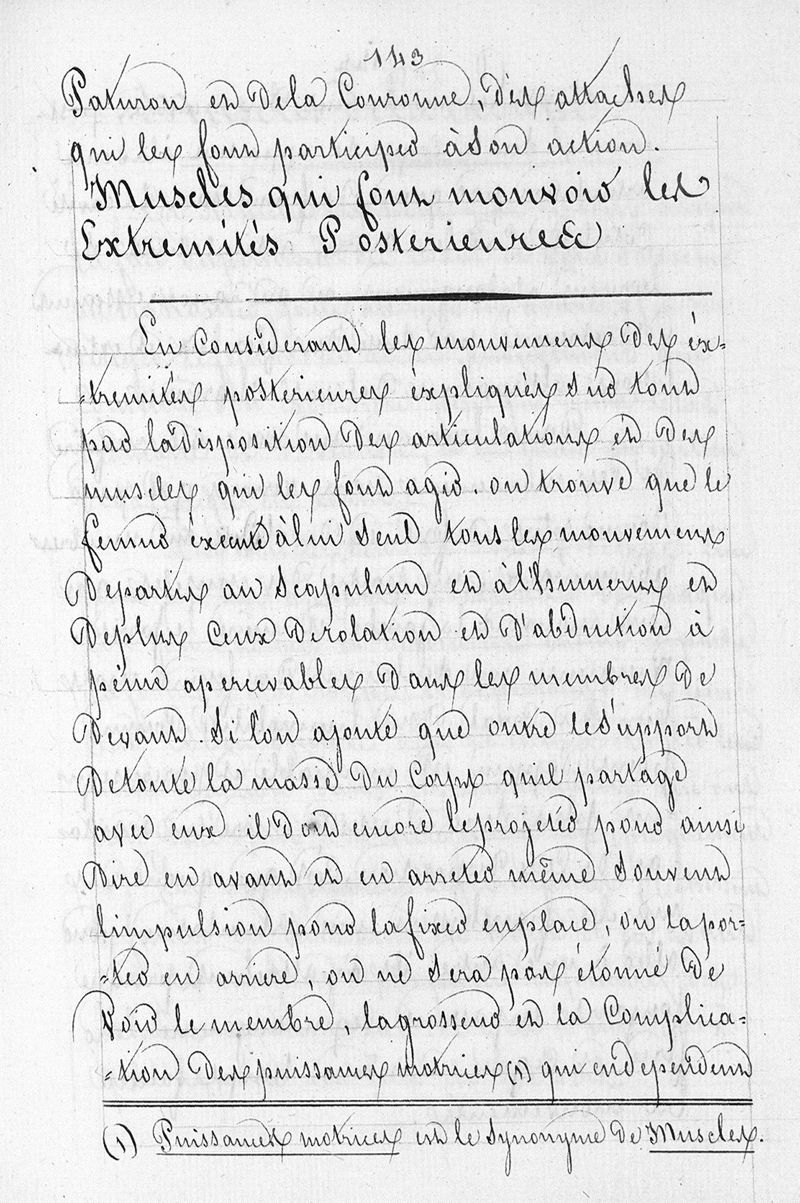 143
Paturon et de la Couronne, des attaches
qui les font participer à son action.
Muscles qui font mouvoir les
Extremités Posterieures
En Considerant les mouvemens des éx-
-tremités posterieures éxpliqués sur tout
par la disposition des articulations et des
muscles qui les font agir. on trouve que le
femur éxecute à lui seul tous les mouvemens
Departis au Scapulum et à l'humerus et
De plus ceux De rotation et D'abduction à
peine apercevables Dans les membres De
Devant. Si l'on ajoute que outre le Support
De toute la masse Du Corps quil partage
avec eux il Doit encore le projeter pour ainsi
Dire en avant et en arreter même Souvent
limpulsion pour la fixer en place, ou la por-
-ter en arriere, on ne sera pas étonné De
Voir le membre, la grosseur et la Complica-
-tion Des puissances motrices (1) qui en dependent
(1) Puissances motrices est le Synonyme de Muscles.